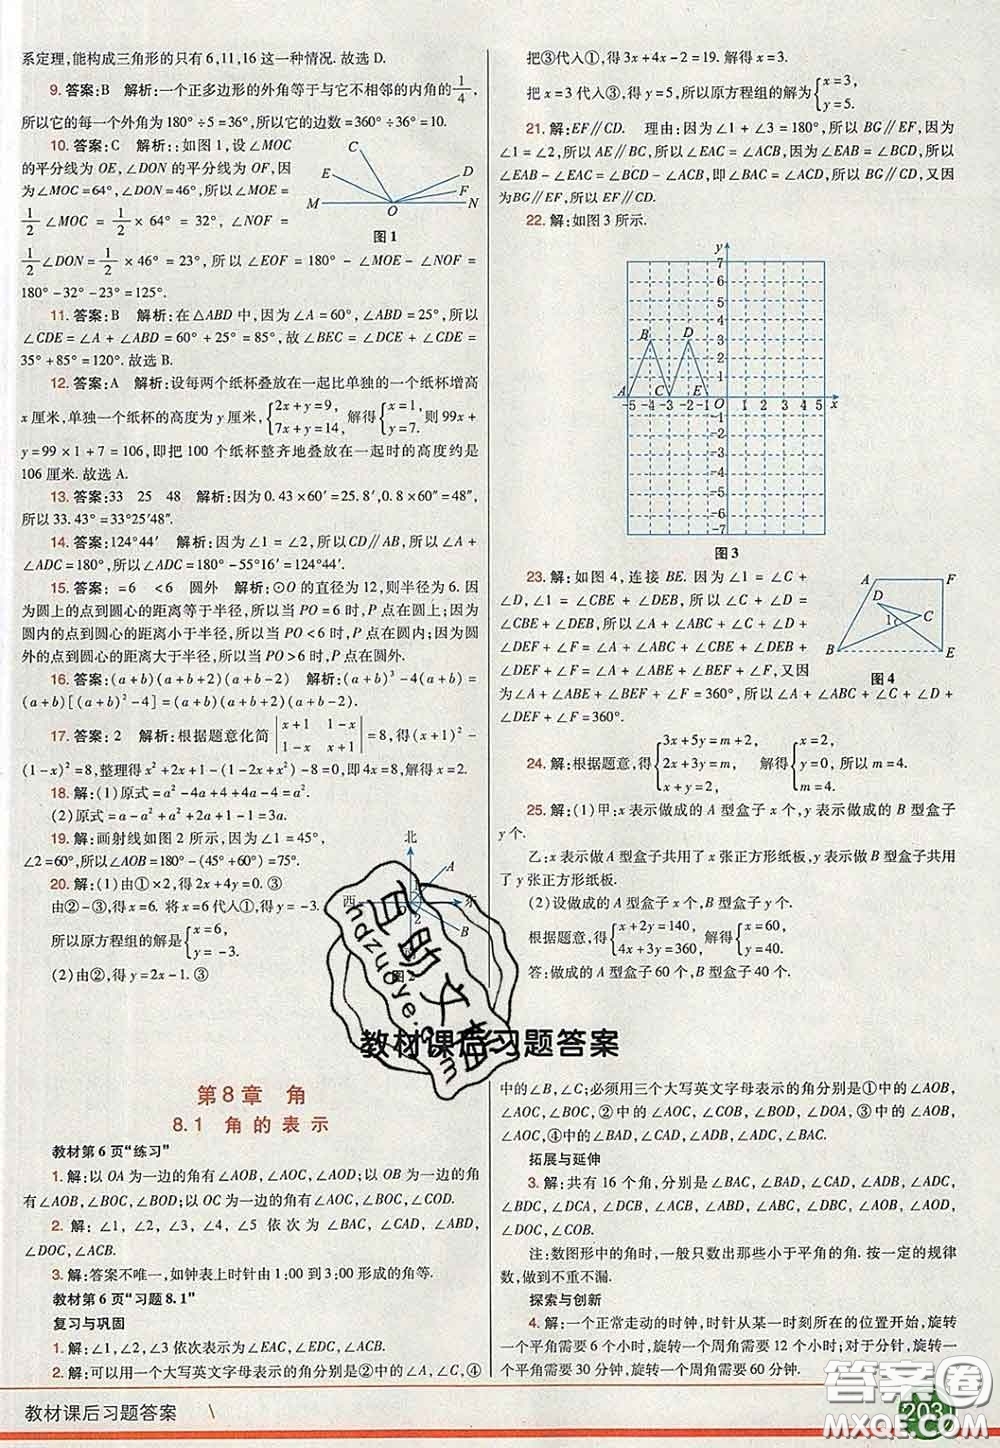 系定理,能构成三角形的只有 6,11,16 这一种情况. 故选 D.
9. 答案:B 解析:一个正多边形的外角等于与它不相邻的内角的 1/4,
所以它的每一个外角为 180°÷5=36°,所以它的边数=360°÷36°=10.
10. 答案:C 解析::如图 1,设∠MOC
的平分线为 OE,∠DON 的平分线为 OF,因
为∠MOC=64°,∠DON=46°,所以∠MOE=
1/2∠MOC= 1/2 × 64° = 32°, ∠NOF =
1/2∠DON= 1/2 ×46° =23°, 所 以 ∠EOF = 180° - ∠MOE - ∠NOF =
180°-32°-23°=125°.
C
E
D
F
M
O
N
图 1
11. 答案:B 解析:在△ABD 中,因为∠A=60°,∠ABD=25°,所以
∠CDE=∠A+∠ABD=60°+25°=85°,故∠BEC=∠DCE+∠CDE=
35°+85°=120°.故选 B.
12. 答案:A 解析:设每两个纸杯叠放在一起比单独的一个纸杯增高
x 厘米,单独一个纸杯的高度为 y 厘米,{2x+y=9, 7x+y=14, 解得{x=1, y=7. 则 99x+
y=99×1+7=106,即把 100 个纸杯整齐地叠放在一起时的高度约是
106 厘米.故选 A.
13. 答案:33 25 48 解析:因为 0.43×60′=25.8′,0.8′×60=48″,
所以 33.43°=33°25′48″.
14. 答案:124°44′ 解析:因为∠1=∠2,所以 CD∥AB,所以∠A+
∠ADC=180°,所以∠ADC=180°-55°16′=124°44′.
15. 答案: =6 <6 圆外 解析:⊙O 的直径为 12,则半径为 6. 因
为圆上的点到圆心的距离等于半径,所以当 PO=6 时,P 点在圆上;因为
圆内的点到圆心的距离小于半径,所以当 PO<6 时,P 点在圆内;因为圆
外的点到圆心的距离大于半径,所以当 PO>6 时,P 点在圆外.
16. 答案:(a+b)(a+b+2)(a+b-2) 解析:(a+b)³-4(a+b)=
(a+b)[(a+b)²-4]=(a+b)(a+b+2)(a+b-2).
17. 答案:2 解析:根据题意化简|x+1 1-x; 1-x x+1|=8,得(x+1)²-
(1-x)²=8,整理得 x²+2x+1-(1-2x+x²)-8=0,即 4x=8,解得 x=2.
18. 解:(1)原式=a²-4a+4+4a-4=a².
(2)原式=a-a²+a²+2a+1-1=3a.
19. 解:画射线如图 2 所示,因为∠1=45°,
∠2=60°,所以∠AOB=180°-(45°+60°)=75°.
20. 解:(1)由①×2,得 2x+4y=0. ③
由②-③,得 x=6. 将 x=6 代入①,得 y=-3.
所以原方程组的解是{x=6, y=-3.
(2)由②,得 y=2x-1. ③
北
A
西
1
东
2
B
把③代入①,得 3x+4x-2=19. 解得 x=3.
把 x=3 代入③,得 y=5,所以原方程组的解为{x=3, y=5.
21. 解:EF∥CD. 理由:因为∠1+∠3=180°,所以 BG∥EF,因为
∠1=∠2,所以 AE∥BC,所以∠EAC=∠ACB,因为∠EAB=∠BCD,所以
∠EAB-∠EAC=∠BCD-∠ACB,即∠BAC=∠ACD,所以 BG∥CD,又因
为 BG∥EF,所以 EF∥CD.
22. 解:如图 3 所示.
y
7
6
5
4
3
2
1
B
D
A
C
E
O
-5 -4 -3 -2 -1
1 2 3 4 5 x
-1
-2
-3
-4
-5
-6
-7
图 3
23. 解:如图 4,连接 BE. 因为∠1=∠C+
∠D,∠1=∠CBE+∠DEB,所以∠C+∠D=
∠CBE+∠DEB,所以∠A+∠ABC+∠C+∠D+
∠DEF+∠F=∠A+∠ABC+∠CBE+∠DEB+
∠DEF+∠F=∠A+∠ABE+∠BEF+∠F,又因
为∠A+∠ABE+∠BEF+∠F=360°,所以∠A+∠ABC+∠C+∠D+
∠DEF+∠F=360°.
A
F
D
1
C
B
E
图 4
24. 解:根据题意,得{3x+5y=m+2, 2x+3y=m, x+y=2, 解得{x=2, y=0, m=4, 所以 m=4.
25. 解:(1)甲:x 表示做成的 A 型盒子 x 个,y 表示做成的 B 型盒子
y 个.
乙:x 表示做 A 型盒子共用了 x 张正方形纸板,y 表示做 B 型盒子共用
了 y 张正方形纸板.
(2)设做成的 A 型盒子 x 个,做成的 B 型盒子 y 个.
根据题意,得{x+2y=140, 4x+3y=360, 解得{x=60, y=40.
答:做成的 A 型盒子 60 个,B 型盒子 40 个.
教材课后习题答案
第 8 章 角
8.1 角 的 表 示
教材第 6 页“练习”
1. 解:以 OA 为一边的角有∠AOB,∠AOC,∠AOD;以 OB 为一边的角
有∠AOB,∠BOC,∠BOD;以 OC 为一边的角有∠AOC,∠BOC,∠COD.
2. 解:∠1, ∠2, ∠3, ∠4, ∠5 依 次 为 ∠BAC, ∠CAD, ∠ABD,
∠DOC,∠ACB.
3. 解:答案不唯一,如钟表上时针由 1:00 到 3:00 形成的角等.
教材第 6 页“习题 8.1”
复习与巩固
1. 解:∠1,∠2,∠3 依次表示为∠BAE,∠DAC,∠ECF.
2. 解:可以用一个大写英文字母表示的角分别是②中的∠A,∠C,④
中的∠B,∠C;必须用三个大写英文字母表示的角分别是①中的∠AOB,
∠AOC,∠BOC,②中的∠AOB,∠BOD,∠DOA,③中的∠AOB,∠BOC,
∠AOC,④中的∠BAD,∠CAD,∠BAC,∠ADB,∠ADC.
拓展与延伸
3. 解:共有 16 个角,分别是∠BAC,∠BAD,∠CAD,∠ADB,∠ADC,
∠BDC,∠DCA,∠DCB,∠ACB,∠CBD,∠CBA,∠DBA,∠AOB,∠AOD,
∠DOC,∠COB.
注:数图形中的角时,一般只数出那些小于平角的角. 按一定的规律
数,做到不重不漏.
探索与创新
4. 解:一个正常走动的时钟,时针从某一时刻所在的位置开始,旋转
一个平角需要 6 个小时,旋转一个周角需要 12 个小时;对于分针,旋转一
个平角需要 30 分钟,旋转一个周角需要 60 分钟.
教材课后习题答案 \
203
答案圈
MXQE.COM